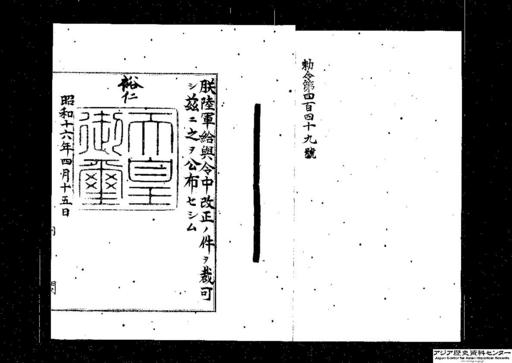 勅令第四百四十九號
朕陸軍給與令中改正ノ件ヲ裁可
シ茲ニ之ヲ公布セシム
裕仁
天皇
御璽
昭和十六年四月十五日
アジア歴史資料センター
Japan Center for Asian Historical Records